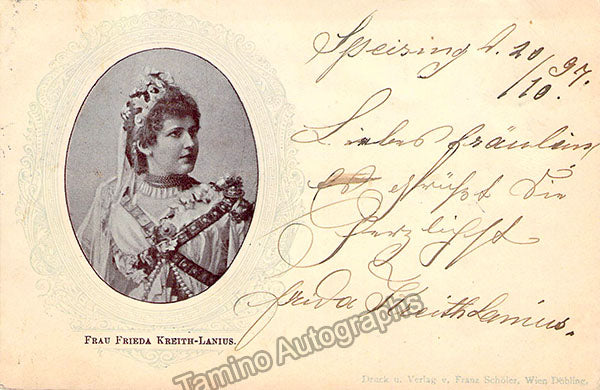 Speising d. 20/10. 97.
Liebes Fräulein,
es grüßt Sie
herzlichst
Frida Kreith Lanius.
FRAU FRIEDA KREITH-LANIUS.
Tamino Autographs
Druck u. Verlag v. Franz Schöler, Wien Döbling.